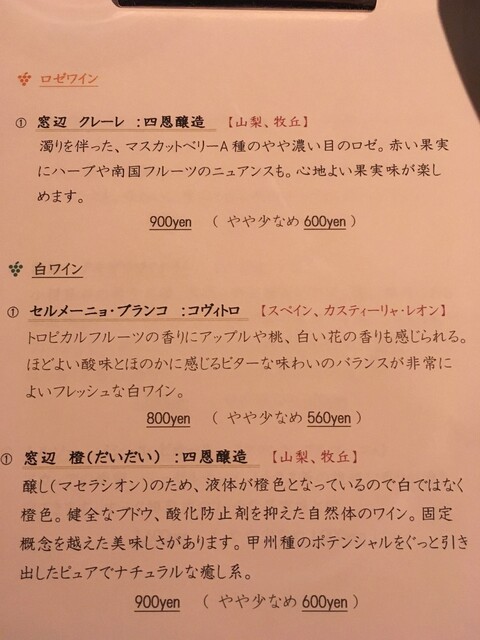 ロゼワイン
① 窓辺 クレーレ :四恩醸造 【山梨、牧丘】
濁りを伴った、マスカットベリーA種のやや濃い目のロゼ。赤い果実
にハーブや南国フルーツのニュアンスも。心地よい果実味が楽し
めます。
900yen ( やや少なめ 600yen )
白ワイン
① セルメーニョ・ブランコ :コヴィトロ 【スペイン、カスティーリャ・レオン】
トロピカルフルーツの香りにアップルや桃、白い花の香りも感じられる。
ほどよい酸味とほのかに感じるビターな味わいのバランスが非常に
よいフレッシュな白ワイン。
800yen ( やや少なめ 560yen )
① 窓辺 橙(だいだい) :四恩醸造 【山梨、牧丘】
醸し(マセラシオン)のため、液体が橙色となっているので白ではなく
橙色。健全なブドウ、酸化防止剤を抑えた自然体のワイン。固定
概念を越えた美味しさがあります。甲州種のポテンシャルをぐっと引き
出したピュアでナチュラルな癒し系。
900yen ( やや少なめ 600yen )